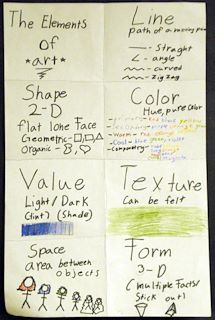 The Elements
of
*art*
Line
path of a moving point
Straight
angle
curved
zig zag
Shape
2-D
flat lone Face
Geometric-
Organic-
Color
Hue, pure Color
red blue yellow
Warm - red
Cool - blue
Value
Light / Dark
(tint) (Shade)
Texture
Can be felt
Space
area between
objects
Form
3-D
(multiple Facts/
Stick out)